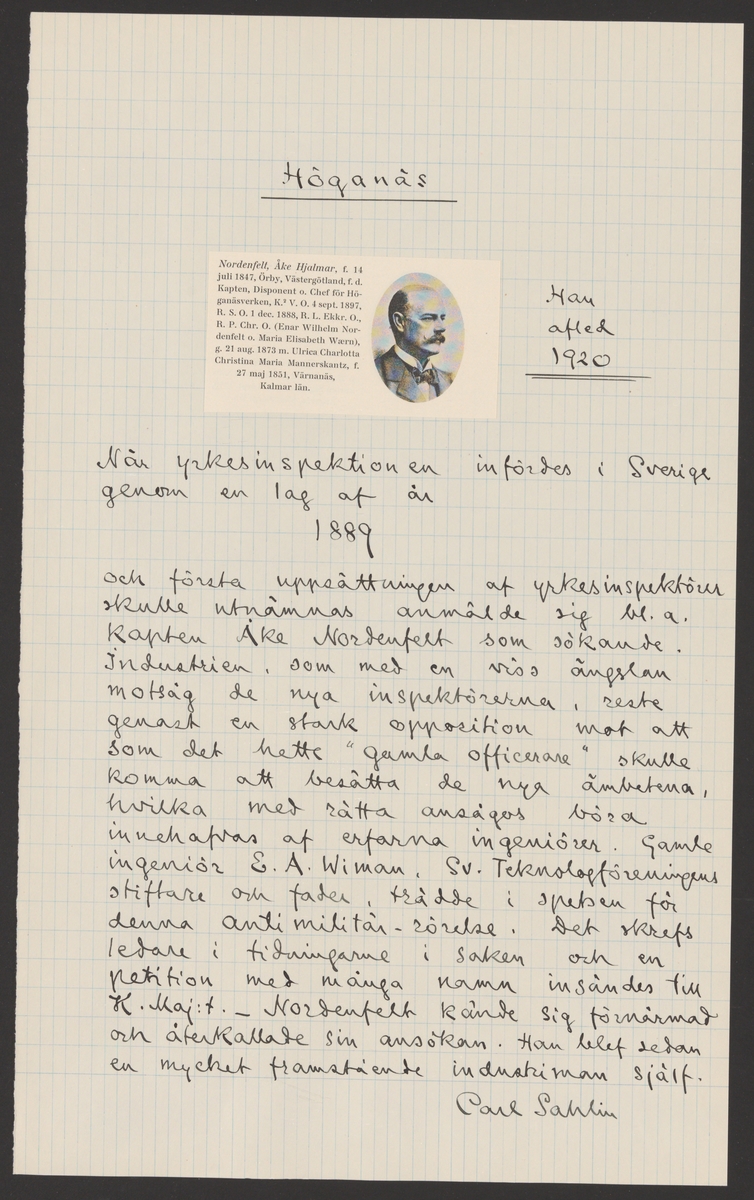 Höganäs
Nordenfelt, Åke Hjalmar, f. 14
juli 1847, Örby, Västergötland, f. d.
Kapten, Disponent o. Chef för Hö-
ganäsverken, K.² V. O. 4 sept. 1897,
R. S. O. 1 dec. 1888, R. L. Ekkr. O.,
R. P. Chr. O. (Enar Wilhelm Nor-
denfelt o. Maria Elisabeth Wærn),
g. 21 aug. 1873 m. Ulrica Charlotta
Christina Maria Mannerskantz, f.
27 maj 1851, Värnanäs,
Kalmar län.
Han
afled
1920
När yrkesinspektionen infördes i Sverige
genom en lag af år
1889
och första uppsättningen af yrkesinspektörer
skulle utnämnas anmälde sig bl. a.
Kapten Åke Nordenfelt som sökande.
Industrien, som med en viss ängslan
motsåg de nya inspektörerna, reste
genast en stark opposition mot att
som det hette "gamla officerare" skulle
komma att besätta de nya ämbetena,
hvilka med rätta ansågos böra
innehafvas af erfarna ingeniörer. Gamle
ingeniör E. A. Wiman, Sv. Teknologföreningens
stiftare och fader, trädde i spetsen för
denna antimilitär-rörelse. Det skrefs
ledare i tidningarne i saken och en
petition med många namn insändes till
K. Maj:t. – Nordenfelt kände sig förnärmad
och återkallade sin ansökan. Han blef sedan
en mycket framstående industriman själf.
Carl Sahlin